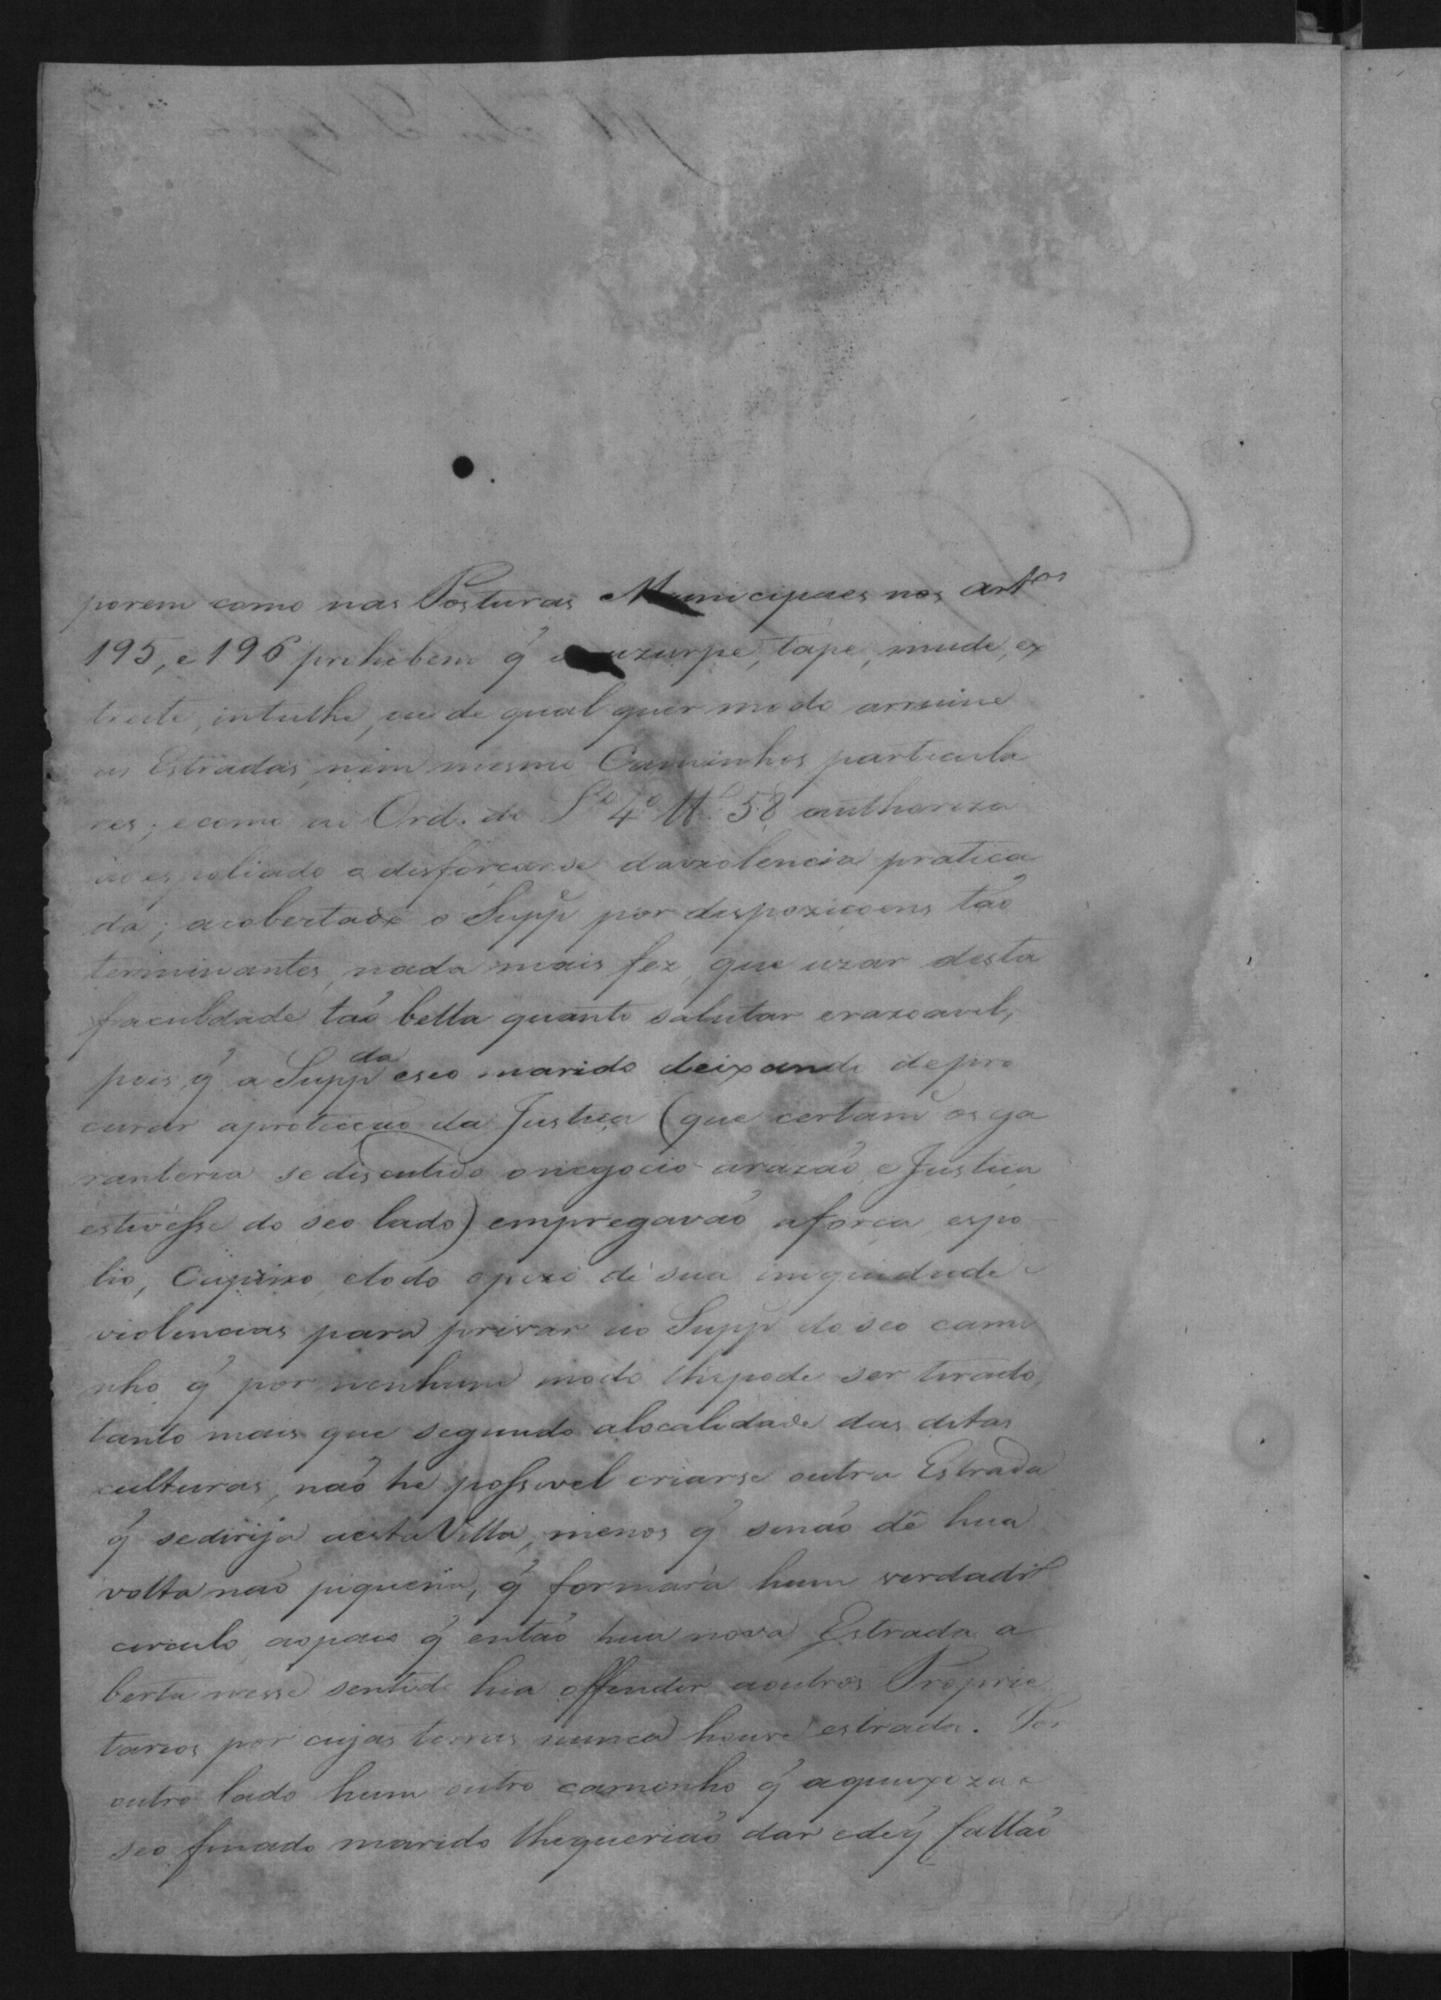 porem como nas Posturas Municipaes nos artos
195, e 196 prohibem q̃ uzurpe, tape, mude, es
treite, intulhe, ou de qual quer modo arruine
as Estradas, nem mesmo Caminhos particula
res; e como a Ord. do L.º 4º tt.º 58 authoriza
ao espoliado a desforcarse daviolencia pratica
da; acobertado o Suppe por dispoziçoens taõ
terminantes, nada mais fez, que uzar desta
faculdade taõ bella quanto salutar erazoavel,
pois q̃ a Suppda eseo marido deixando depro
curar aprotecçaõ da Justiça (que certame os ga
rantiria sediscutido onegocio arazaõ, e Justiça
estivesse do seo lado) empregavaõ aforça, espo
lio, etodo opezo de sua iniquidade e
violencias para privar ao Suppe do seo cami
nho q̃ por nenhum modo lhepode ser tirado,
tanto mais que segundo alocalidade das ditas
culturas, naõ he possivel criarse outra Estrada
q̃ sedirija aesta Villa, menos q̃ senaõ dê hua
volta naõ piquena, q̃ formará hum verdadro
circulo, aopaço q̃ entaõ hua nova Estrada a
berta nesse sentido hia offender aoutros Proprie
tarios por cujas terras nunca houve estrada. Por
outro lado hum outro caminho q̃ aqueixoza e
seo finado marido lhequeriaõ dar edeq̃ fallaõ